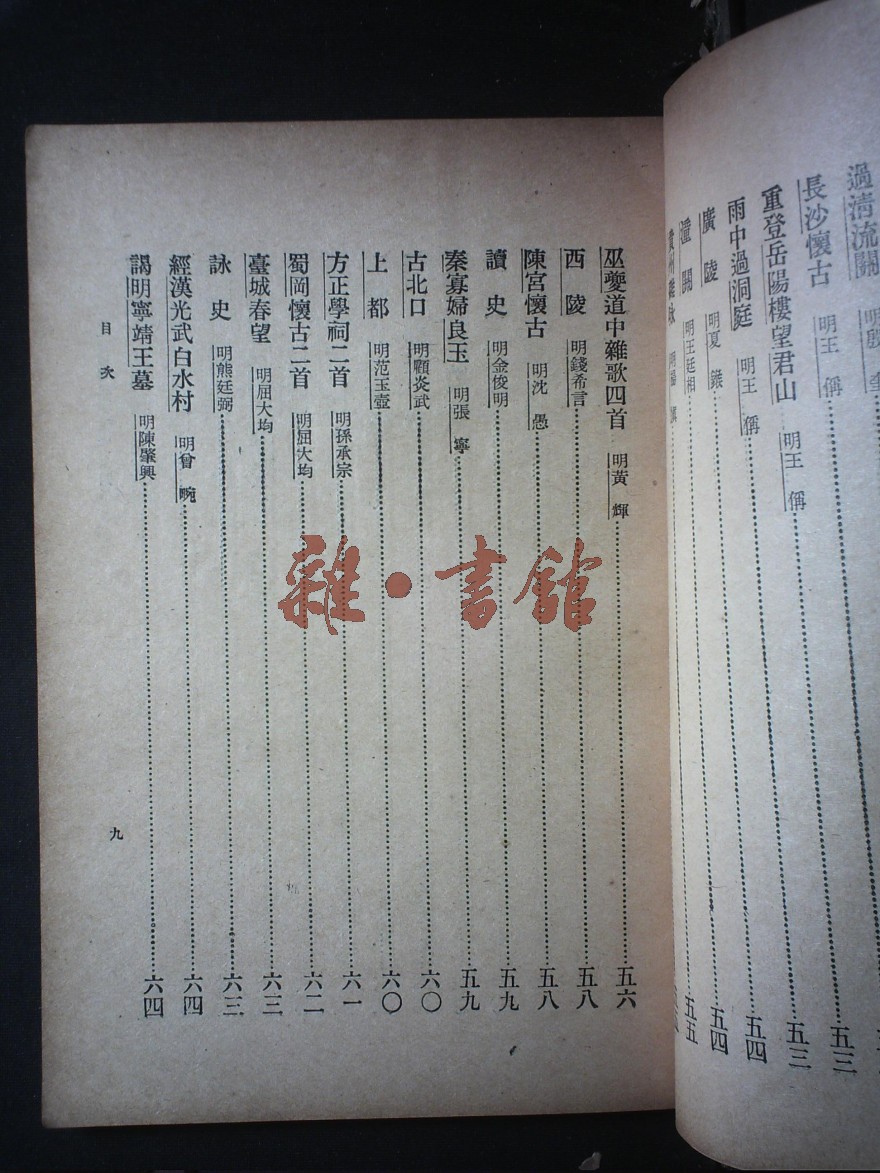 過清流關 明殷奎
長沙懷古 明王偁 五三
重登岳陽樓望君山 明王偁 五三
雨中過洞庭 明王偁 五四
廣陵 明夏鍭 五四
潼關 明王廷相 五五
巫夔道中雜歌四首 明黃輝 五六
西陵 明錢希言 五八
陳宮懷古 明沈愚 五八
讀史 明金俊明 五九
秦寡婦良玉 明張寧 五九
古北口 明顧炎武 六〇
上都 明范玉壺 六〇
方正學祠二首 明孫承宗 六一
蜀岡懷古二首 明屈大均 六二
臺城春望 明屈大均 六三
詠史 明熊廷弼 六三
經漢光武白水村 明曾畹 六四
謁明寧靖王墓 明陳肇興 六四
目次
九
雜·書館